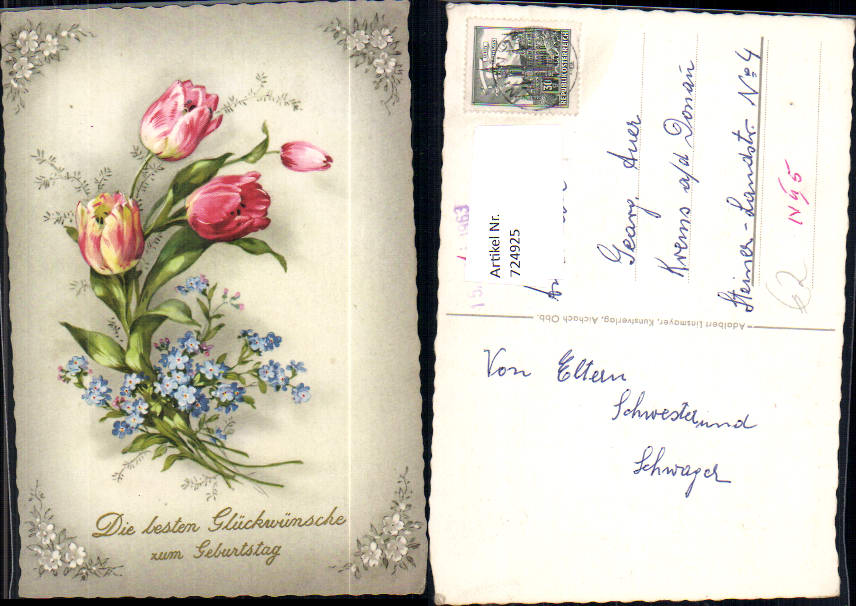 Die besten Glückwünsche
zum Geburtstag
30
REPUBLIK ÖSTERREICH
1963
Artikel Nr.
724925
Georg Auer
Krems a/d Donau
Steiner-Landstr. No 4
62
Adalbert Linsmayer, Kunstverlag, Aichach Obb.
Von Eltern
Schwester und
Schwager